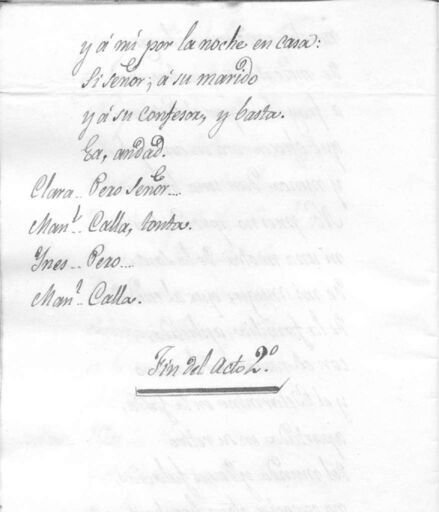 y á mi por la noche en casa:
Si Señor; á su marido
y á su confesor, y basta.
Ea, andad.
Clara.. Pero Señor....
Man.l Calla, tonta.
Ynes... Pero....
Man.l Calla.
Fin del Acto 2.º